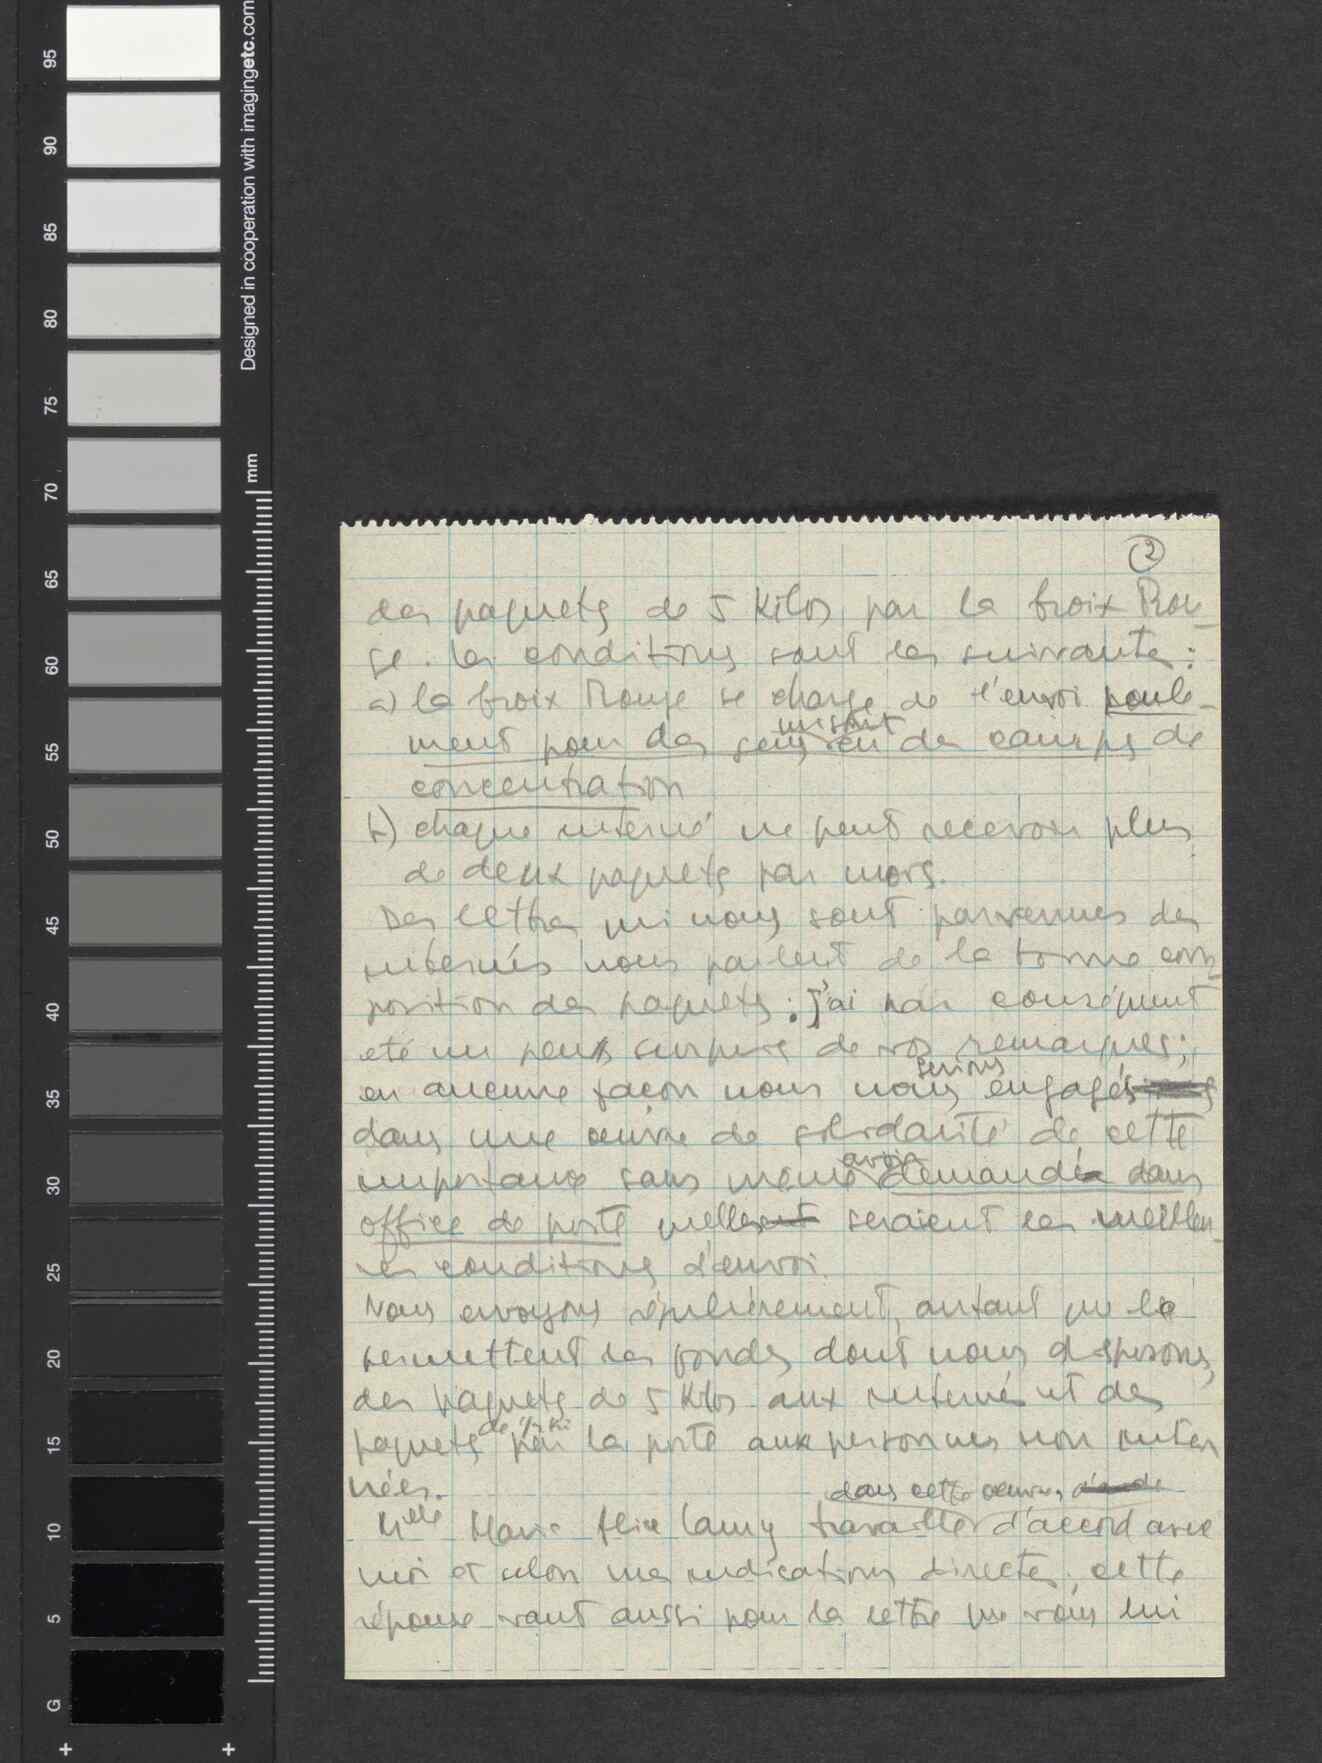 ②
des paquets de 5 Kilos par la Croix Rou-
ge. les conditions sont les suivantes :
a) la Croix Rouge se charge de l'envoi seule-
ment pour des gens qui sont en des camps de
concentration
b) chaque interné ne peut recevoir plus
de deux paquets par mois.
Des lettres qui nous sont parvenues des
internés nous parlent de la bonne com-
position des paquets : j'ai par conséquent
été un peu surpris de vos remarques ;
en aucune façon nous nous serions engagés
dans une œuvre de solidarité de cette
importance sans même avoir demandé dans
office de poste quelles seraient les meilleu-
res conditions d'envoi.
Nous envoyons régulièrement, autant que le
permettent les fonds dont nous disposons,
des paquets de 5 Kilos aux internés et des
paquets de par la poste aux personnes non inter
nées.
dans cette œuvre,
Melle Marie Camy travaille d'accord avec
moi et selon mes indications directes, cette
réponse vaut aussi pour la lettre que vous lui
95
90
85
80
75
70
65
60
55
50
45
40
35
30
25
20
15
10
5
G
mm
Designed in cooperation with imagingetc.com